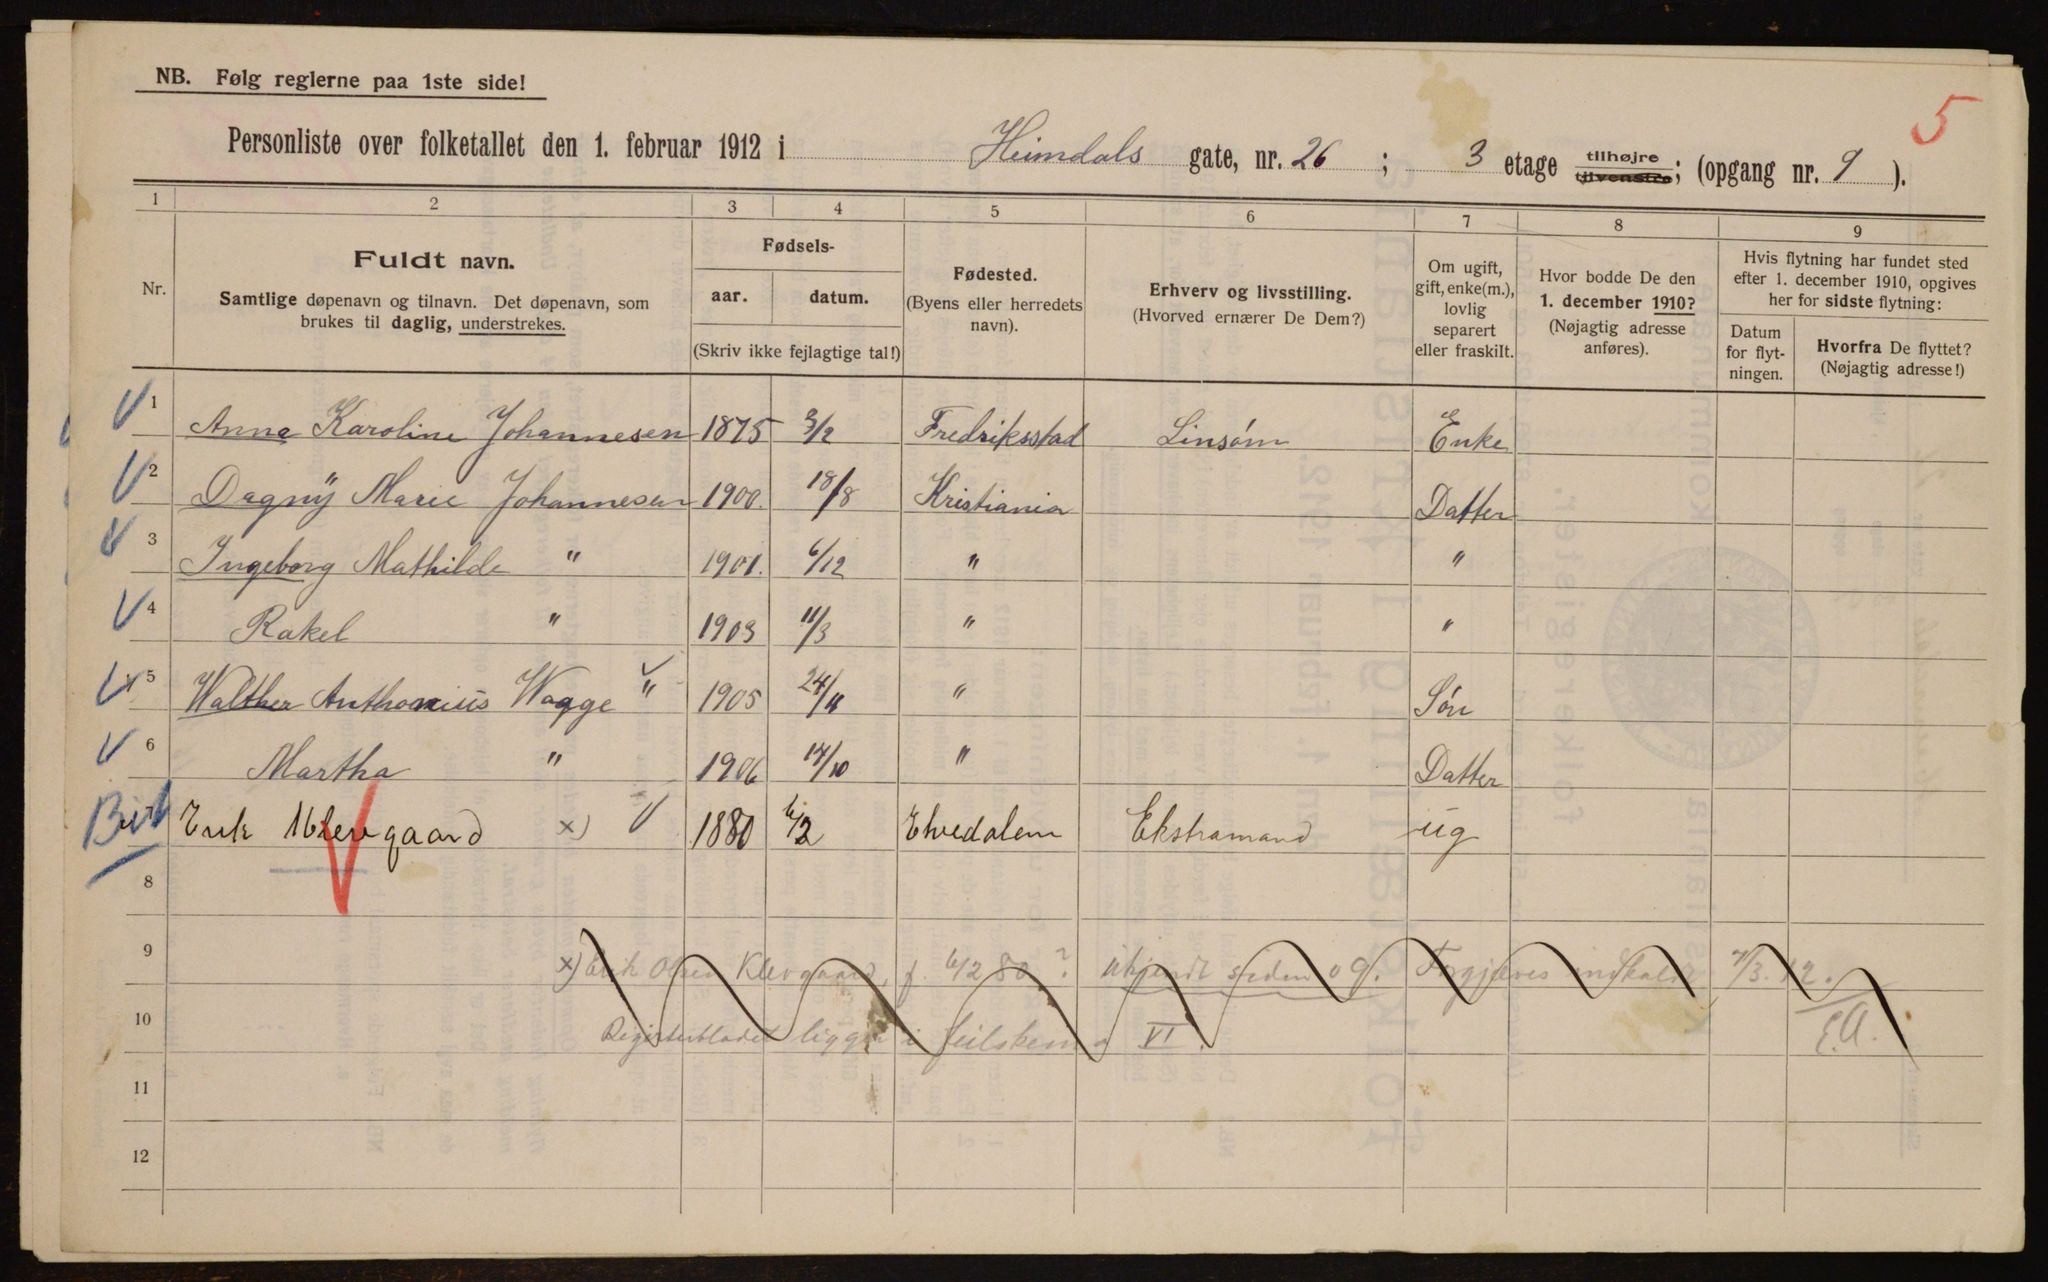 5
NB. Følg reglerne paa 1ste side!
Personliste over folketallet den 1. februar 1912 i Heimdals gate, nr. 26 ; 3 etage tilhøjre tilvenstre; (opgang nr. 9 ).
1 2 3 4 5 6 7 8 9
Nr.
Fuldt navn.
Samtlige døpenavn og tilnavn. Det døpenavn, som
brukes til daglig, understrekes.
Fødsels-
aar. datum.
(Skriv ikke fejlagtige tal!)
Fødested.
(Byens eller herredets
navn).
Erhverv og livsstilling.
(Hvorved ernærer De Dem?)
Om ugift,
gift, enke(m.),
lovlig
separert
eller fraskilt.
Hvor bodde De den
1. december 1910?
(Nøjagtig adresse
anføres).
Hvis flytning har fundet sted
efter 1. december 1910, opgives
her for sidste flytning:
Datum
for flyt-
ningen.
Hvorfra De flyttet?
(Nøjagtig adresse!)
1 Anna Karoline Johannesen 1875 3/2 Fredriksstad Linsøm Enke
2 Dagny Marie Johannesen 1900. 18/8 Kristiania Datter
3 Ingeborg Mathilde " 1901. 6/12 " "
4 Rakel " 1903 11/3 " "
5 Walther Anthonius Wagge " 1905 24/11 " Søn
6 Martha " 1906 14/10 " Datter
Erik Klevgaard x) 1880 6/2 Elvedalem Ekstramand ug
8
9 x) Erik Olsen Klevgaard, f 6/2 80 ? ukjendt siden 09. Forgjæves indkaldt 7/3. 12.
10 Registerbladet ligger i feilskema VI. E.A.
11
12